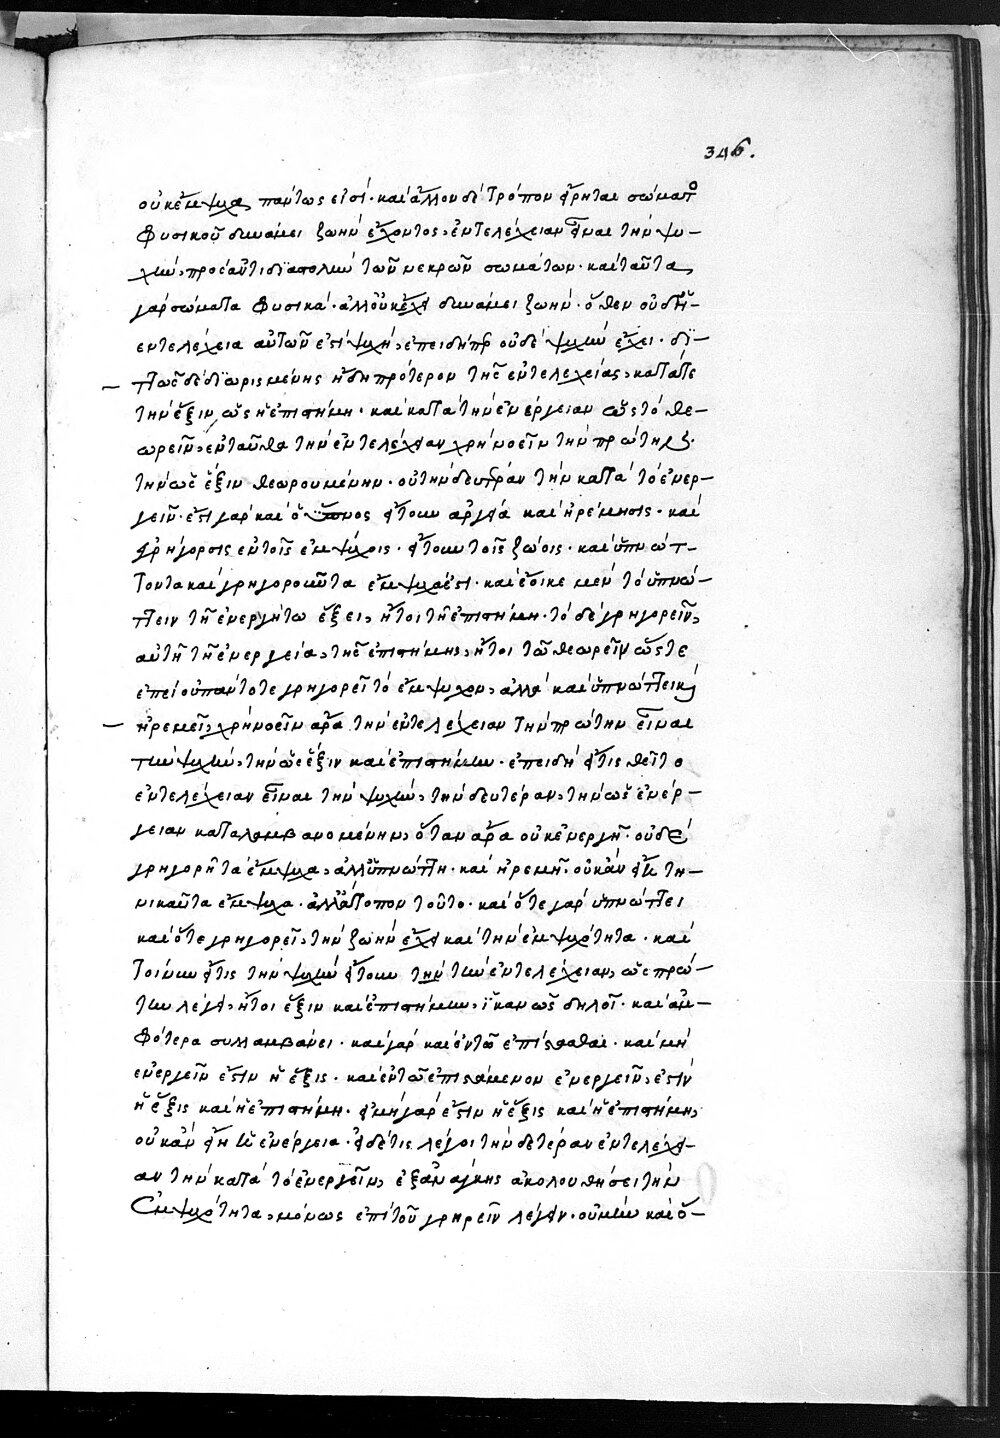 346.
οὐκ ἔμψυχα πάντως εἰσί· καὶ ἄλλον δὲ τρόπον εἴρηται σώματο
φυσικοῦ δυνάμει ζωὴν ἔχοντος, ἐντελέχειαν εἶναι τὴν ψυ-
χὴν, πρὸς ἀντιδιαστολὴν τῶν νεκρῶν σωμάτων· καὶ ταῦτα
γὰρ σώματα φυσικά· ἀλλ' οὐκ ἔχει δυνάμει ζωήν· ὅθεν οὐδὲ ἡ
ἐντελέχεια αὐτῶν ἐστὶ ψυχή, ἐπειδήπερ οὐδὲ ψυχὴν ἔχει· διτ-
τῶς δὲ διωρισμένης ἤδη πρότερον τῆς ἐντελεχείας, κατά τε
τὴν ἕξιν, ὡς ἡ ἐπιστήμη· καὶ κατὰ τὴν ἐνέργειαν ὡς τὸ θε-
ωρεῖν, ἐνταῦθα τὴν ἐντελέχειαν χρὴ νοεῖν τὴν πρώτην
τὴν ὡς ἕξιν θεωρουμένην· οὐ τὴν δευτέραν τὴν κατὰ τὸ ἐνερ-
γεῖν· ἔστι γὰρ καὶ ὁ ὕπνος ἤτουν ἀργία καὶ ἠρέμησις· καὶ
ἐγρήγορσις ἐν τοῖς ἐμψύχοις· ἤτουν τοῖς ζώοις· καὶ ὑπνώτ-
τοντα καὶ γρηγοροῦντα ἔμψυχά ἐστι· καὶ ἔοικε μὲν τὸ ὑπνώτ-
τειν τῇ ἀνενεργήτω ἕξει, ἤτοι τῇ ἐπιστήμη· τὸ δὲ γρηγορεῖν,
αὐτῇ τῇ ἐνεργεία, τῆς ἐπιστήμης, ἤτοι τῶ θεωρεῖν ὥστε
ἐπεὶ οὐ πάντοτε γρηγορεῖ τὸ ἔμψυχον, ἀλλὰ καὶ ὑπνώττει καὶ
ἠρεμεῖ, χρὴ νοεῖν ἄρα τὴν ἐντελέχειαν τὴν πρώτην εἶναι
τὴν ψυχὴν, τὴν ὡς ἕξιν καὶ ἐπιστήμην· ἐπειδὴ εἴ τις θεῖτο
ἐντελέχειαν εἶναι τὴν ψυχὴν, τὴν δευτέραν, τὴν ὡς ἐνέρ-
γειαν καταλαμβανομένην, ὅταν ἄρα οὐκ ἐνεργῆ· οὐδὲ
γρηγορῆ τὰ ἔμψυχα, ἀλλ' ὑπνώττη· καὶ ἠρεμῆ· οὐκ ἂν εἴη τη-
νικαῦτα ἔμψυχα· ἀλλ' ἄτοπον τοῦτο· καὶ ὅτε γὰρ ὑπνώττει
καὶ ὅτε γρηγορεῖ, τὴν ζωὴν ἔχει καὶ τὴν ἐμψυχότητα· καὶ
τοίνυν εἴ τις τὴν ψυχὴν ἤτουν τὴν τὴν ἐντελέχειαν, ὡς πρώ-
την λέγει, ἤτοι ἕξιν καὶ ἐπιστήμην, ἱκανῶς δηλοῖ· καὶ ἀμ-
φότερα συλλαμβάνει· καὶ γὰρ καὶ ἐν τῶ ἐπίστασθαι· καὶ μὴ
ἐνεργεῖν ἔστιν ἡ ἕξις· καὶ ἐν τῶ ἐπιστάμενον ἐνεργεῖν, ἐστὶν
ἡ ἕξις καὶ ἡ ἐπιστήμη· εἰ μὴ γὰρ ἔστιν ἡ ἕξις καὶ ἡ ἐπιστήμη,
οὐκ ἂν εἴη ἐνέργεια· εἰ δέ τις λέγοι τὴν δευτέραν ἐντελέχει-
αν τὴν κατὰ τὸ ἐνεργεῖν, ἐξ ἀνάγκης ἀκολουθήσει τὴν
ἐμψυχότητα, μόνως ἐπὶ τοῦ γρηρεῖν λέγειν· οὐ μὴν καὶ ὅ-